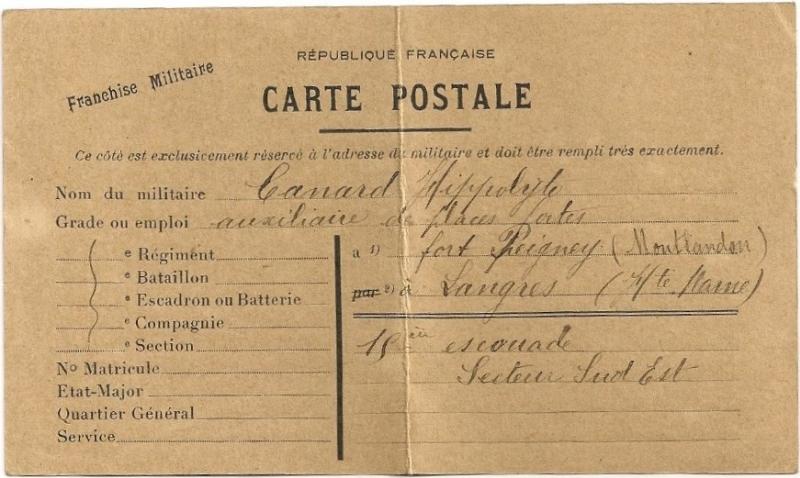 RÉPUBLIQUE FRANÇAISE
Franchise Militaire
CARTE POSTALE
Ce côté est exclusicement réservé à l'adresse du militaire et doit être rempli très exactement.
Nom du militaire Canard Hippolyte
Grade ou emploi auxiliaire de places fortes
e Régiment
e Bataillon
e Escadron ou Batterie
e Compagnie
e Section
No Matricule
Etat-Major
Quartier Général
Service
a 1) fort Peigney (Montlandon)
par 2) à Langres (Hte Marne)
15eme escouade
Secteur Sud Est